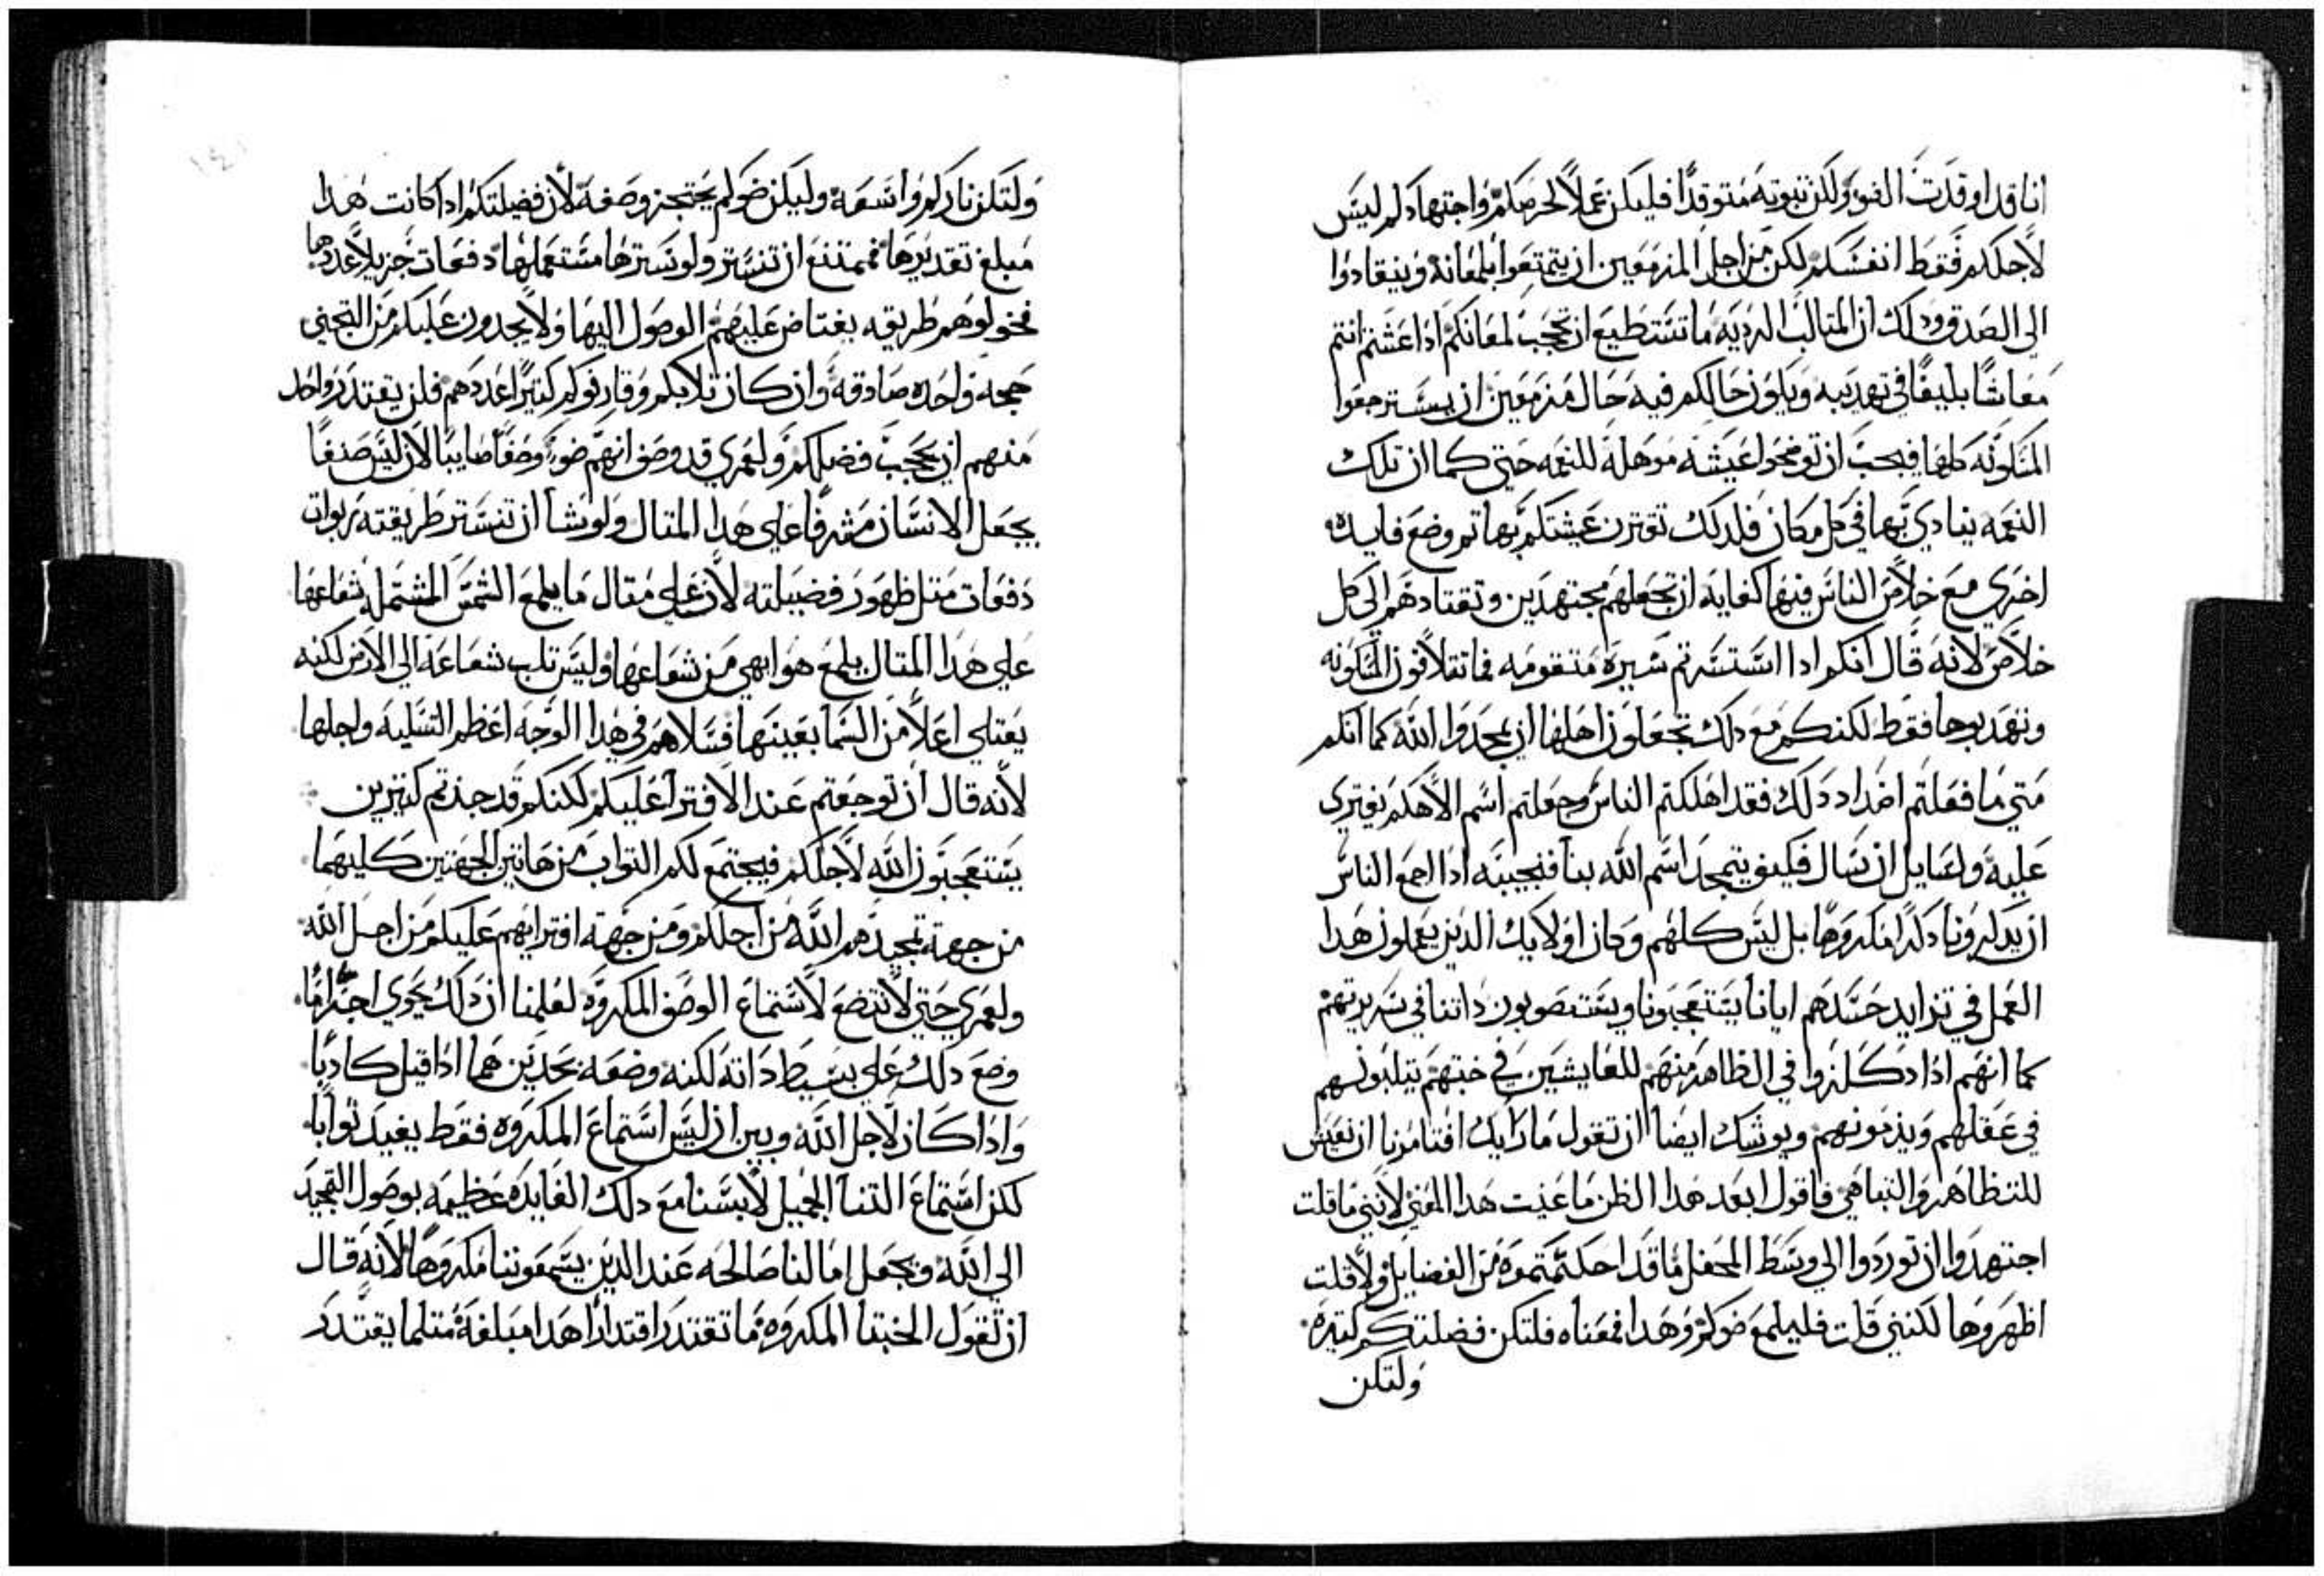 انا قد اوقدت الضو ولكن ثبوته متوقدًا فليكن عملاً لحرصكم واجتهادكم ليس
لاجلكم فقط انفسكم لكن من اجل المزمعين ان يتمتعوا بلمعانه وينقادوا
الى الصدق وذلك ان المثالب الرديه ما تستطيع ان تحجب لمعانكم اذا عشتم انتم
معاشًا بليغًا في تهديبه ويكون حالكم فيه حال مزمعين ان يسترجعوا
المسكونه كلها فيجب ان توضحوا عيشة موهلة للنعمه حتى كما ان تلك
النعمه ينادي بها في كل مكان فلدلك تقترن عيشتكم بها تم وضع فايده
اخري مع خلاص الناس فيها كفايه ان تجعلهم مجتهدين وتقتادهم الى كل
خلاص لانه قال انكم ادا استسرتم سيرة متقومه فما تتلافون المسكونه
وتهدبوها فقط لكنكم مع دلك تجعلون اهلها ان يمجدوا الله كما انكم
متي ما فعلتم اضداد دلك فقد اهلكتم الناس وجعلتم اسم الاهكم يفتري
عليه ولسايل ان سال فكيف يتمجد اسم الله بنا فنجيبه اذا ازمع الناس
ان يدكرونا دكرًا مكروهًا بل ليس كلهم وكان اولايك الدين يعملون هدا
العمل في تزايد حسدهم ايانا يستعجبونا ويستصوبون داتنا في سريرتهم
كما انهم اذا دكلزوا في الظاهر منهم للعايشين في خبتهم يتلبونهم
في عقلهم ويذمونهم ويوشك ايضًا ان تقول ما رايك افتامرنا ان نعيش
للتظاهر والتباهي فاقول ابعد هدا الظن ما عنيت هدا المعني لانني ما قلت
اجتهدوا ان توردوا الى وسط المحفل ما قد احكمتموه من الفضايل ولا قلت
اظهروها لكنني قلت فليلمع ضوكم وهدا فمعناه فلتكن فضلتكم كتيره
ولتكن
ولتكن ناركم واسعه وليكن ضوكم يحتجز وصفه لان فضيلتكم ادا كانت هدا
مبلغ تقديرها فممتنع ان تتستر ولو سترها مستعملها دفعات جزيلاً عددها
فخولوهم طريقه يغتاض عليهم الوصول اليها ولا يجدون عليكم من التجني
حجه واحده صادقه وان كان ثلابكم وقارفوكم كتيرًا عددهم فلن يقتدر واحد
منهم ان يحجب فضلكم ولعمري قد وصف انهم ضو وصفًا صايبًا لان ليس صنفا
يجعل الانسان مشرفًا على هدا المتال ولو شا ان تتستر طريقته ربوات
دفعات متل ظهور فضيلته لان علي متال ما يلمع الشمس المشتمل شعاعها
علي هدا المتال يلمع هو ابهي من شعاعها وليس تلب شعاعه الى الارض لكنه
يعتلي اعلاً من السما بعينها فسلاهم في هدا الوجه اعظم التسليه واجلها
لانه قال ان توجعتم عند الافترا عليكم لكنكم قد جذتم كتيرين
يستعجبون الله لاجلكم فيجتمع لكم التواب من هاتين الجهتين كليهما
من جهة تمجيدهم الله من اجلكم ومن جهته افترايهم عليكم من اجل الله
ولعمري حتي لا نتضع لاستماع الوصف المكروه لعلمنا ان دلك يحوي اجترامًا
وضع دلك علي بسيط داته لكنه وضعه بحدين هما اذا قيل كادبًا
واذا كان لاجل الله وبين ان ليس استماع المكروه فقط يفيد توابًا
لكن استماع التنا الجميل لابسنا مع دلك الفايده عظيمه بوصول التمجيد
الى الله وبجعل امالنا صالحه عند الدين يسمعوننا مكروهًا لانه قال
ان تقول الخبثا المكروه ما تقتدر اقتدارًا هدا مبلغه متلما يقتدر